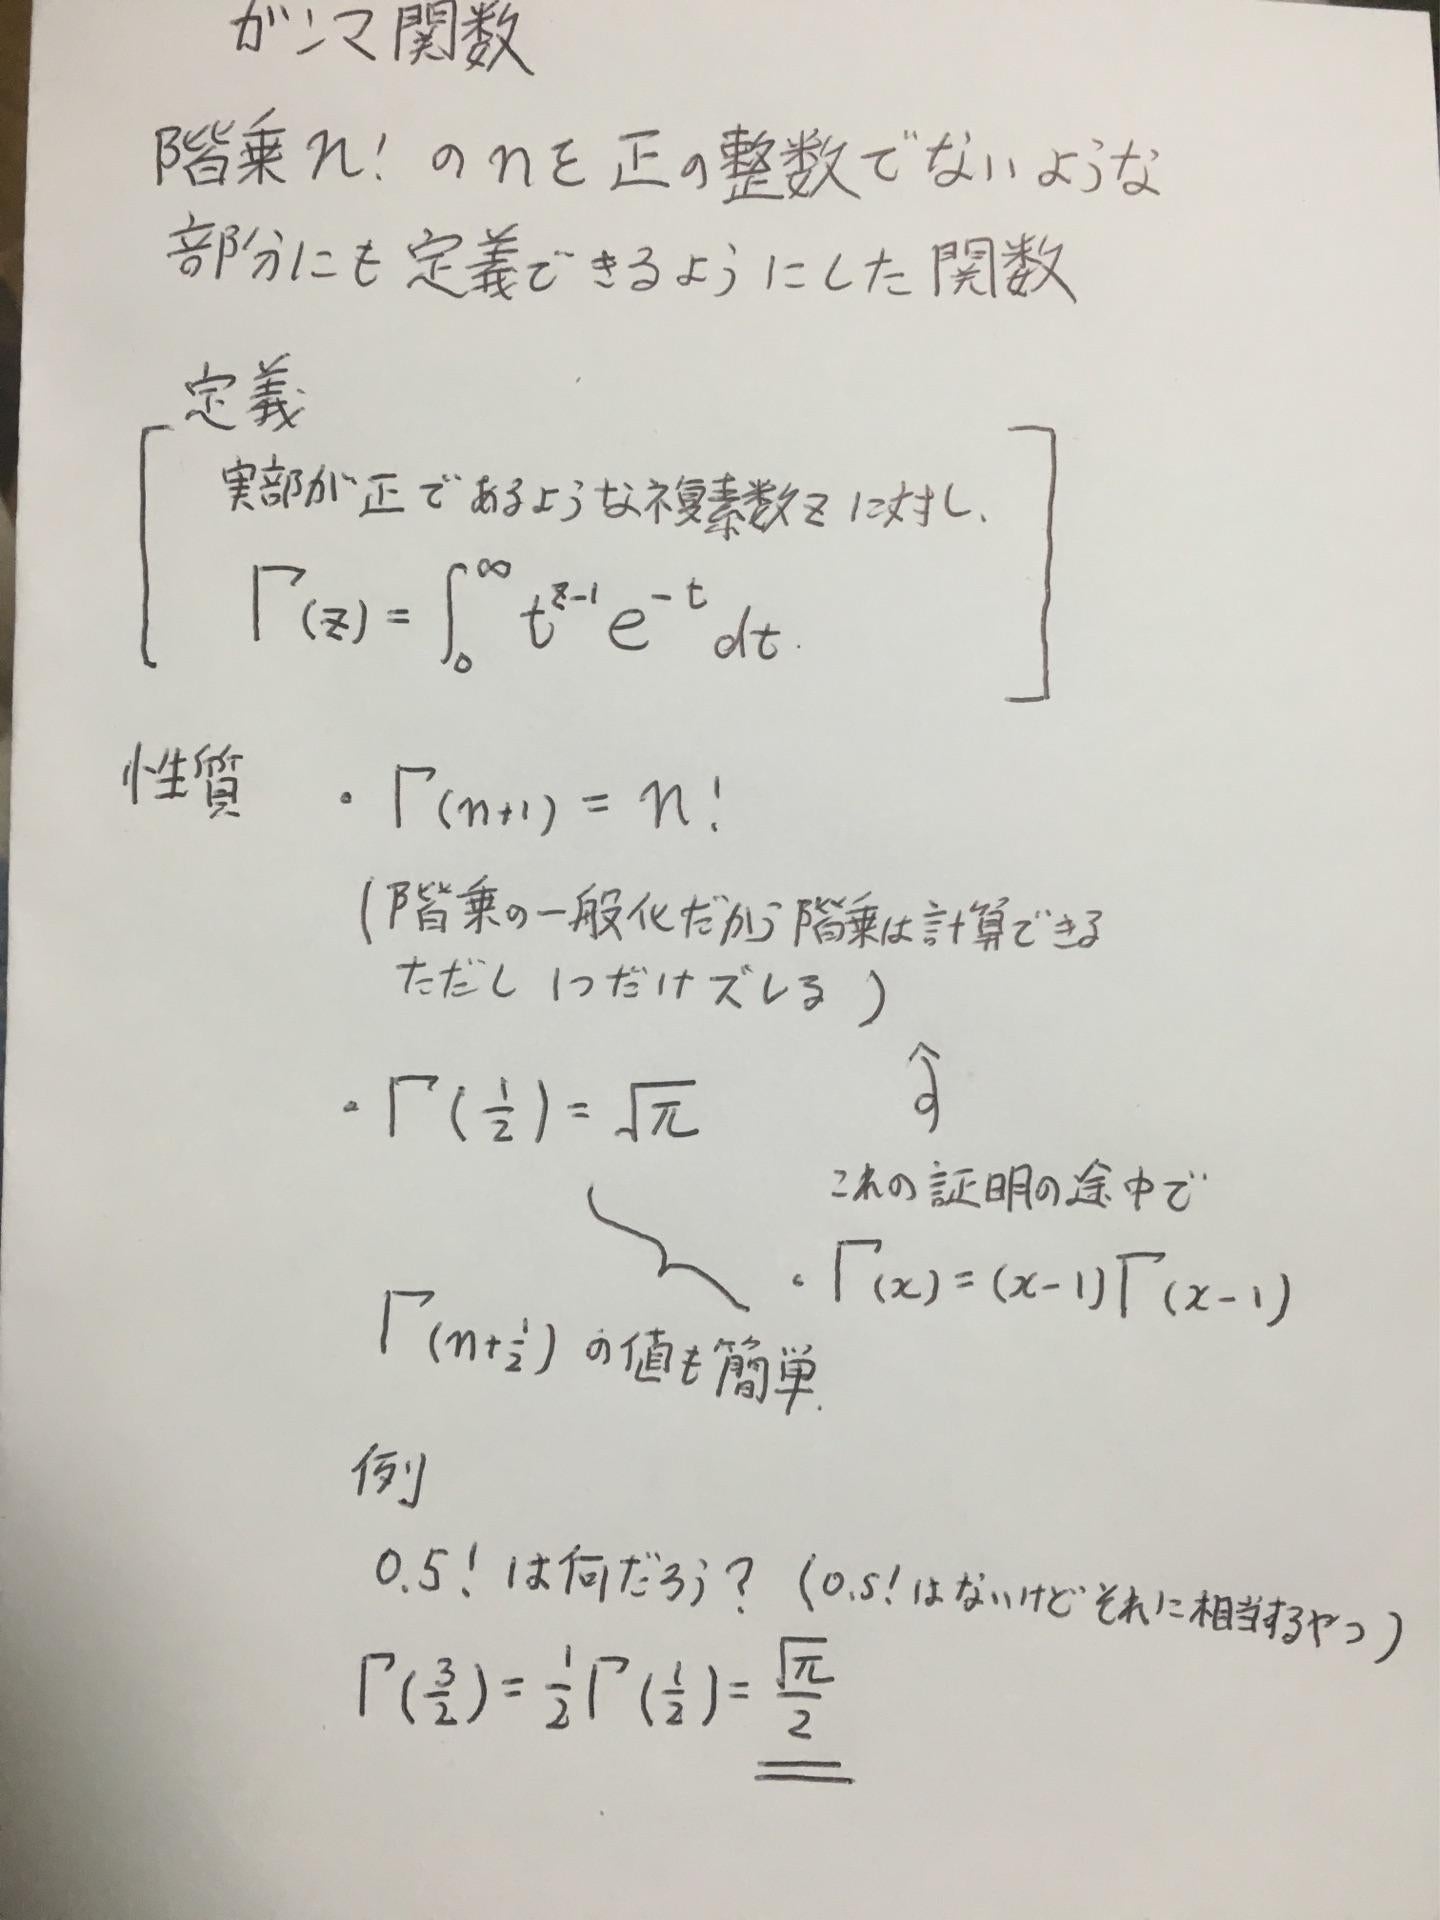 ガンマ関数
階乗n! のnを正の整数でないような
部分にも定義できるようにした関数
定義
実部が正であるような複素数zに対し、
Γ(z) = ∫₀^∞ t^{z-1} e^{-t} dt.
性質
・Γ(n+1) = n!
(階乗の一般化だから階乗は計算できる
ただし1つだけズレる)
・Γ(1/2) = √π
これの証明の途中で
・Γ(x) = (x-1)Γ(x-1)
Γ(n+1/2) の値も簡単.
例
0.5! は何だろう? (0.5!はないけどそれに相当するやつ)
Γ(3/2) = 1/2 Γ(1/2) = √π/2